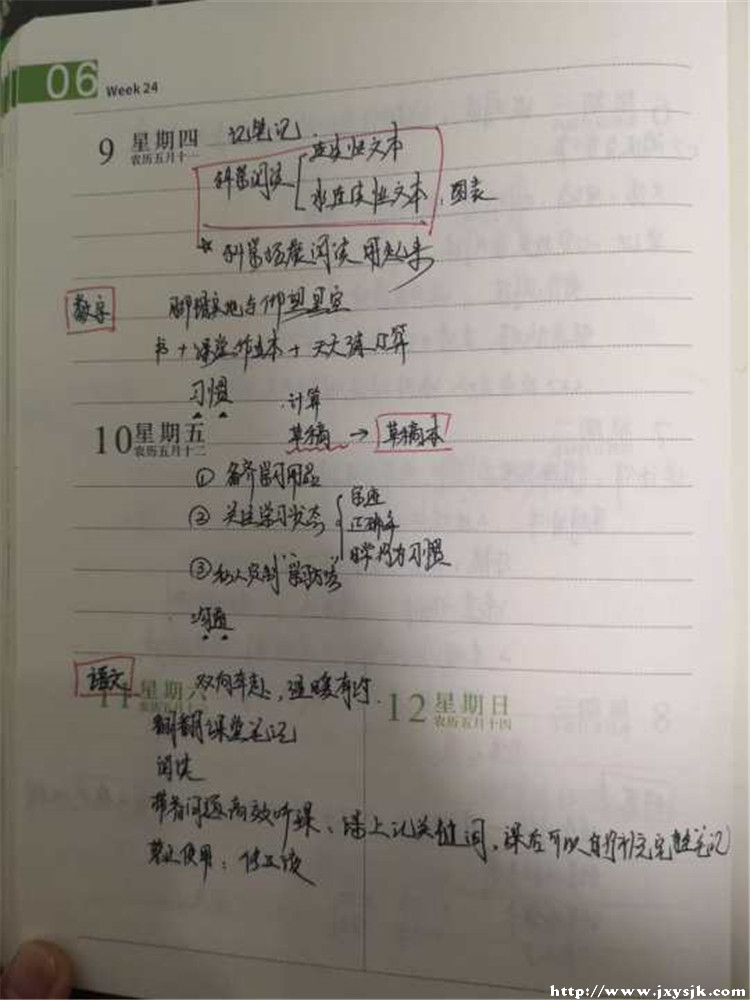 06 Week 24
9 星期四 记笔记.
农历五月十一
连续性文本
科学阅读
非连续性文本. 图表
科学拓展阅读 用起来
数学 脚踏实地与仰望星空
书+课堂作业本+天天练 口算
习惯
计算
10 星期五 草稿→草稿本
农历五月十二
① 备齐学习用品
② 关注学习状态
字迹
正确率
自学能力习惯
③ 私人定制"学习方案
沟通
语文
11 星期六 双向奔赴,温暖有许.
12 星期日
农历五月十四
翻翻课堂笔记
阅读
带着问题高效听课、课上记关键词,课后可以自行补充完整笔记
使用:
http://www.jxysjk.com